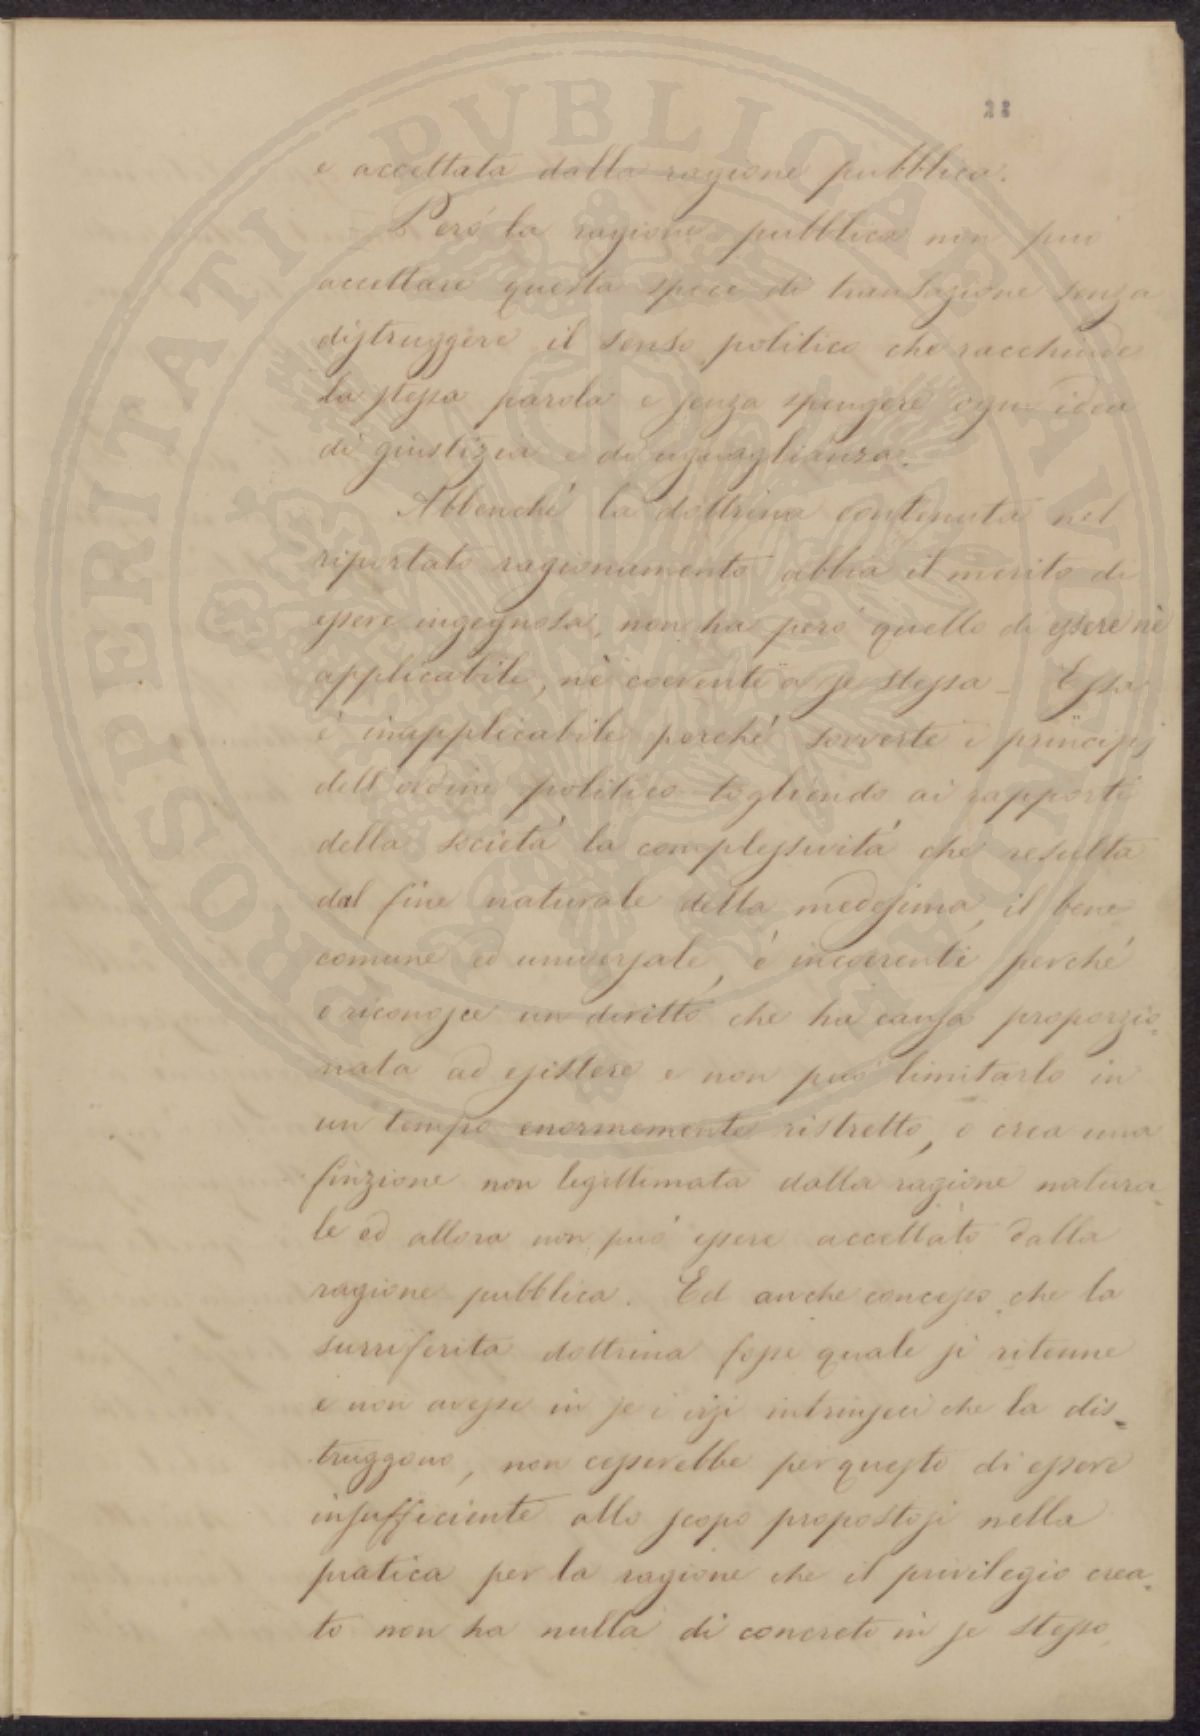 28
e accettata dalla ragione pubblica.
Però la ragione pubblica non può
accettare questa spece di transazione senza
distruggere il senso politico che racchiude
la stessa parola e senza spingere ogni idea
di giustizia e di uguaglianza.
Abbenché la dottrina contenuta nel
riportato ragionamento abbia il merito di
essere ingegnosa, non ha però quello di essere nè
applicabile, nè coerente a se stessa - Essa
è inapplicabile perché sovverte i principj
dell'ordine politico togliendo ai rapporti
della società la complessività che resulta
dal fine naturale della medesima, il bene
comune ed universale, è incoerente perché
o riconosce un diritto che ha causa proporzio-
nata ad esistere e non può limitarlo in
un tempo enormemente ristretto, o crea una
finzione non legittimata dalla ragione natura-
le ed allora non può essere accettato dalla
ragione pubblica. Ed anche concesso che la
surriferita dottrina fosse quale si ritenne
e non avesse in se i vizi intrinseci che la dis-
truggono, non cesserebbe per questo di essere
insufficiente allo scopo propostosi nella
pratica per la ragione che il privilegio crea-
to non ha nulla di concreto in se stesso
PROSPERITATI PUBLICAE AUGENDAE